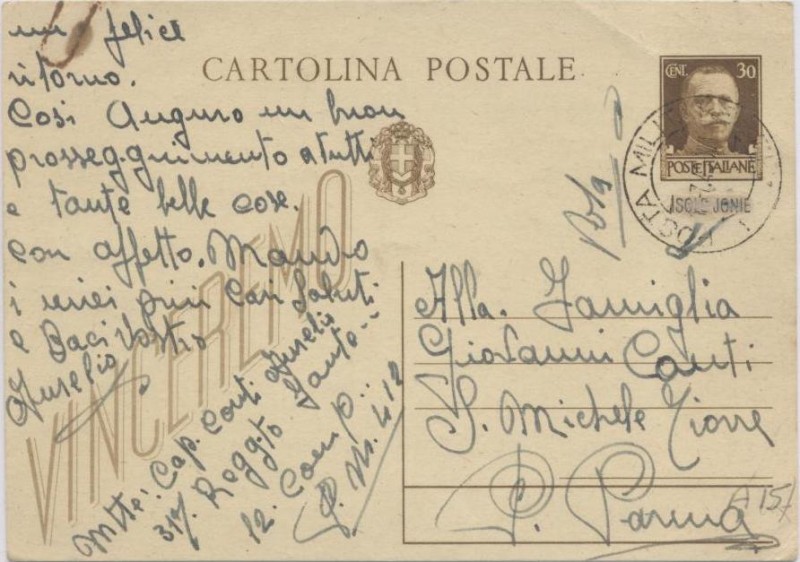 un felice
ritorno.
Così Auguro un buon
prosseg.guimento a tutti
e tante belle cose.
con affetto. Mando
i miei più Cari Saluti
e Baci Vostro
Aurelio
CARTOLINA POSTALE
CENT. 30
POSTE ITALIANE
POSTA MIL
ISOLE JONIE
VINCEREMO
Alla. Famiglia
Giovanni Conti
S. Michele Tiorre
P. Parma
Mtte: Cap. Conti Aurelio
317 Reggto Fante..
12. Comp..
P. M. 412